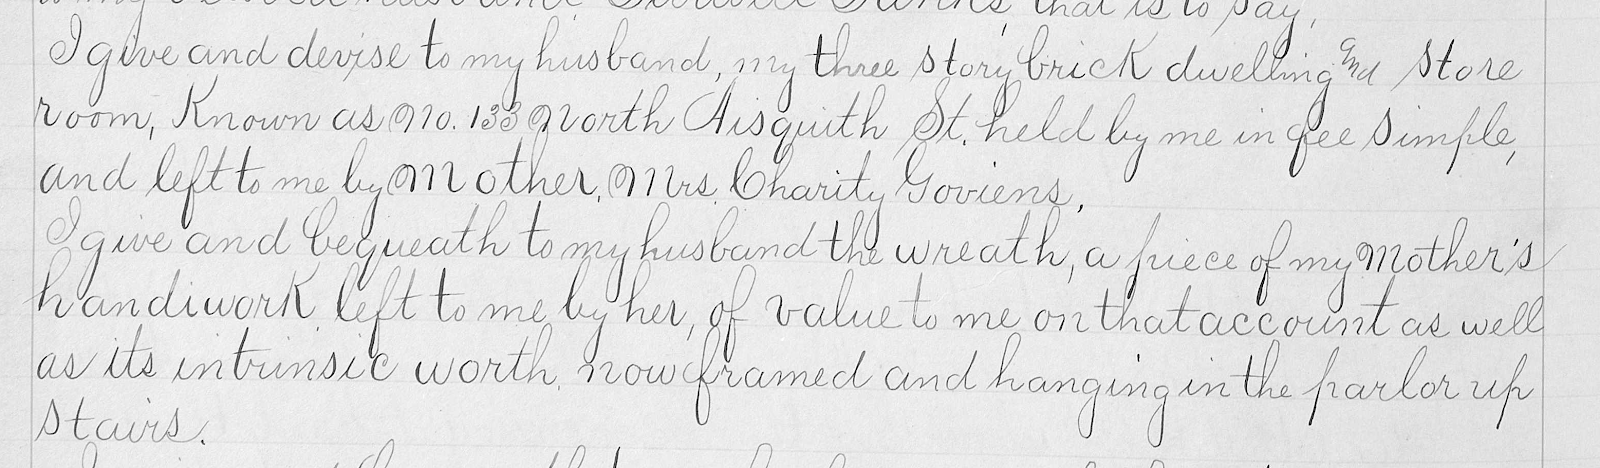 that is to say,
I give and devise to my husband, my three story brick dwelling and store
room, Known as No. 133 North Aisquith St. held by me in fee simple,
and left to me by Mother, Mrs. Charity Goviens.
I give and bequeath to my husband the wreath, a piece of my Mother's
handiwork left to me by her, of value to me on that account as well
as its intrinsic worth, now framed and hanging in the parlor up
stairs.